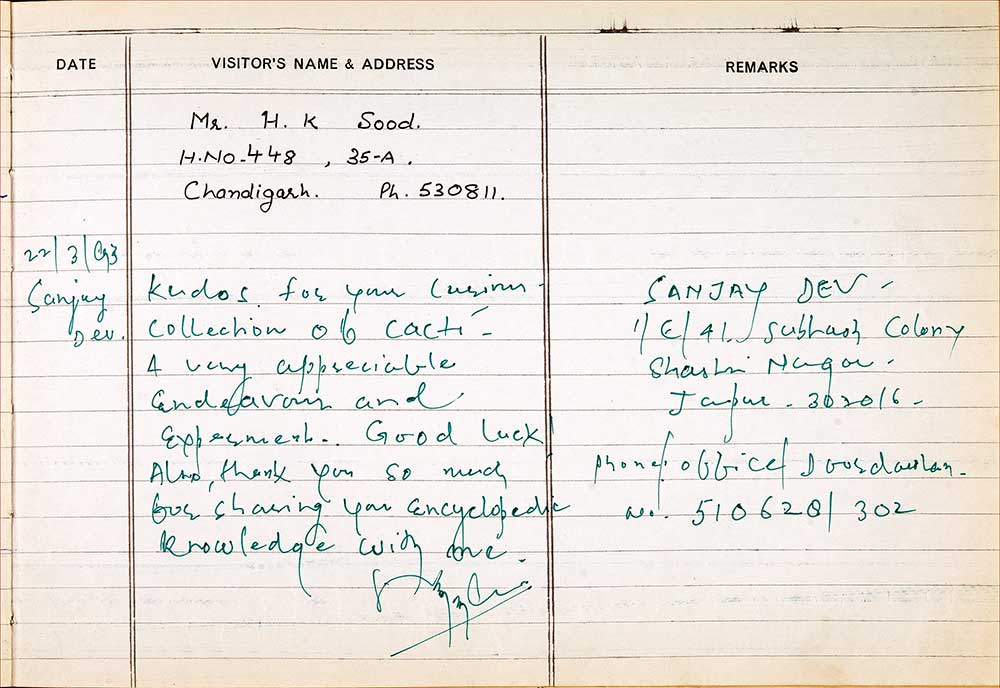 DATE
VISITOR'S NAME & ADDRESS
REMARKS
Mr. H. K Sood.
H.No-448, 35-A.
Chandigarh. Ph. 530811.
22/3/93
Sanjay
Dev.
Kudos for your
Collection of cacti -
A very appreciable
Endeavour and
Experiment.. Good luck!
Also, thank you so much
for sharing your encyclopedic
knowledge with me.
SANJAY DEV -
1/E/41. Subhash Colony
Shastri Nagar -
Jaipur - 302016 -
phone: office/ Doordarshan.
no. 510620/302